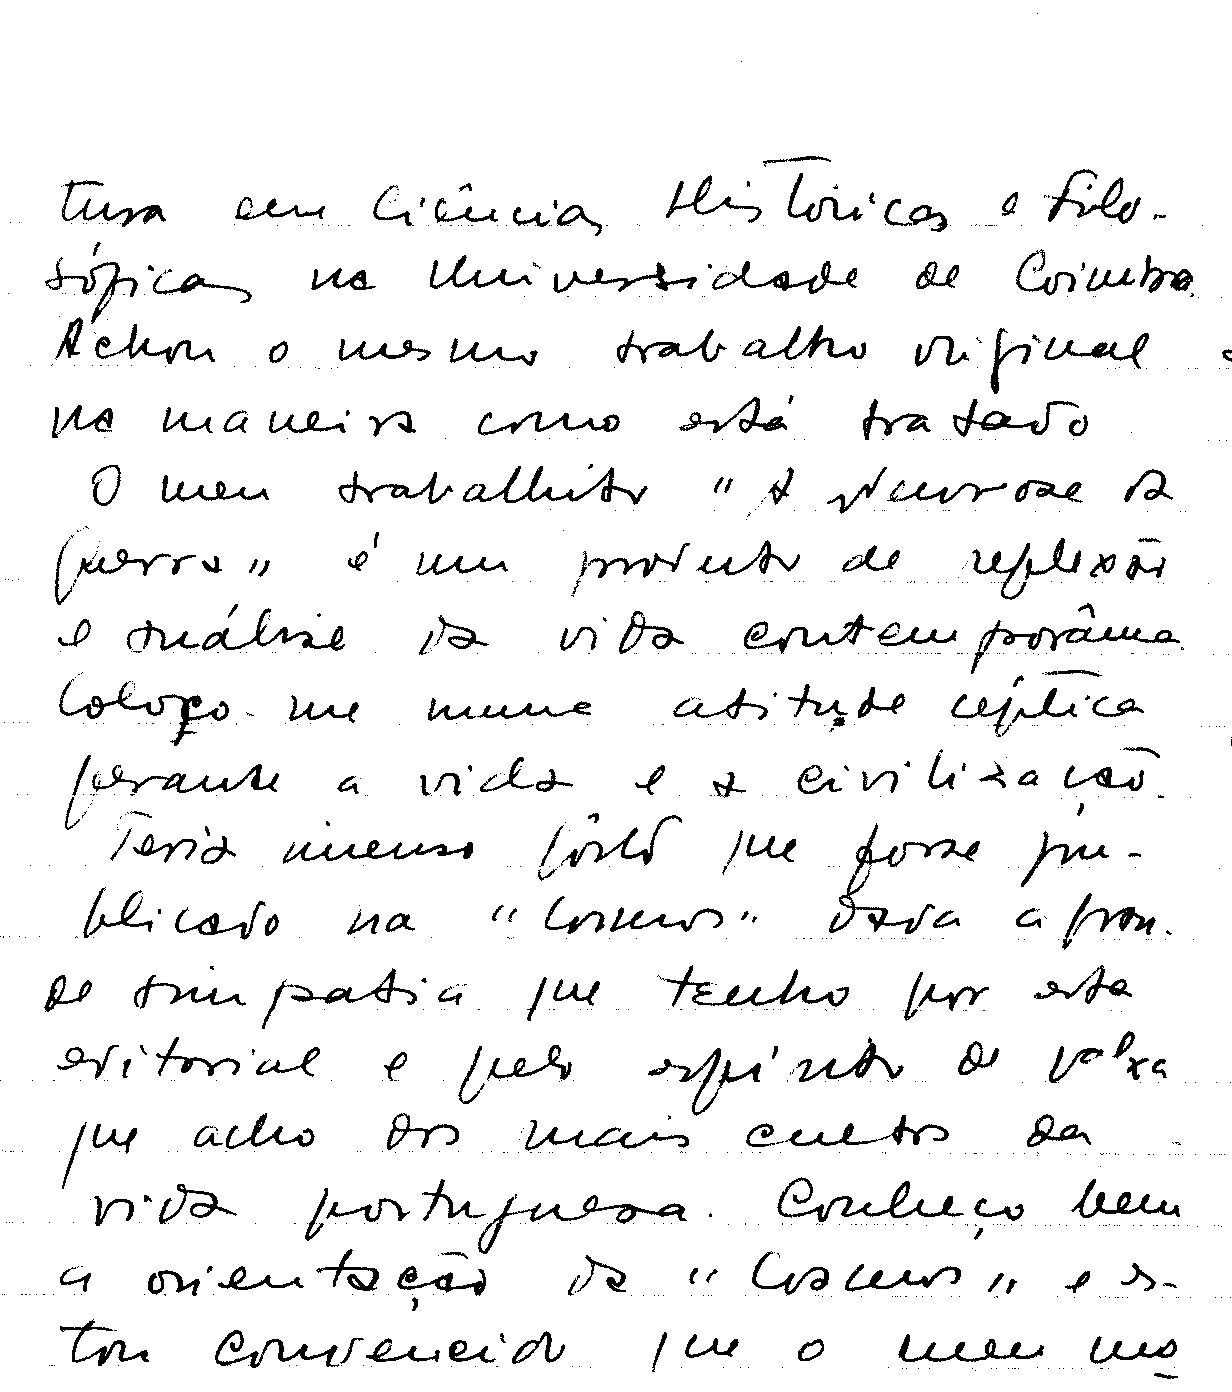 tura em Ciências Históricas e Filo-
sóficas na Universidade de Coimbra.
Achou o mesmo trabalho original e
na maneira como está tratado
O meu trabalhito "A Neurose da
guerra" é um produto de reflexão
e análise da vida contemporânea.
Coloco-me numa atitude céptica
perante a vida e a civilização.
Teria imenso gôsto que fosse pu-
blicado na "Cosmos" dada a gran-
de simpatia que tenho por esta
editorial e pelo espírito de
que acho dos mais cultos da
vida portuguesa. Conheço bem
a orientação da "Cosmos" e es-
tou convencido que o meu não